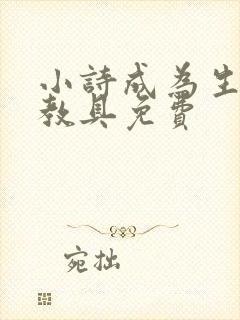 小詩成為生
教具免費
宛拙